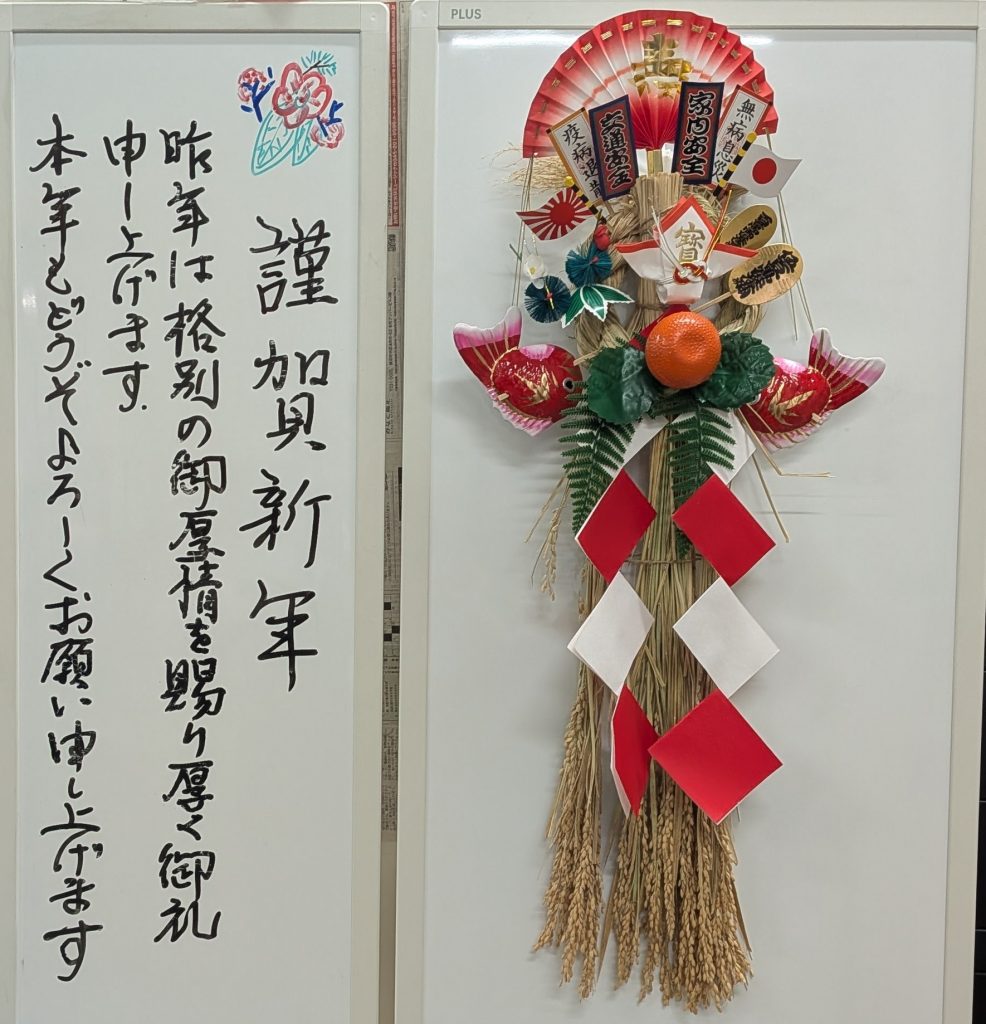 謹賀新年
昨年は格別の御厚情を賜り厚く御礼
申し上げます.
本年もどうぞよろしくお願い申し上げます
PLUS
疫病退散
交通安全
家内安全
無病息災
寶